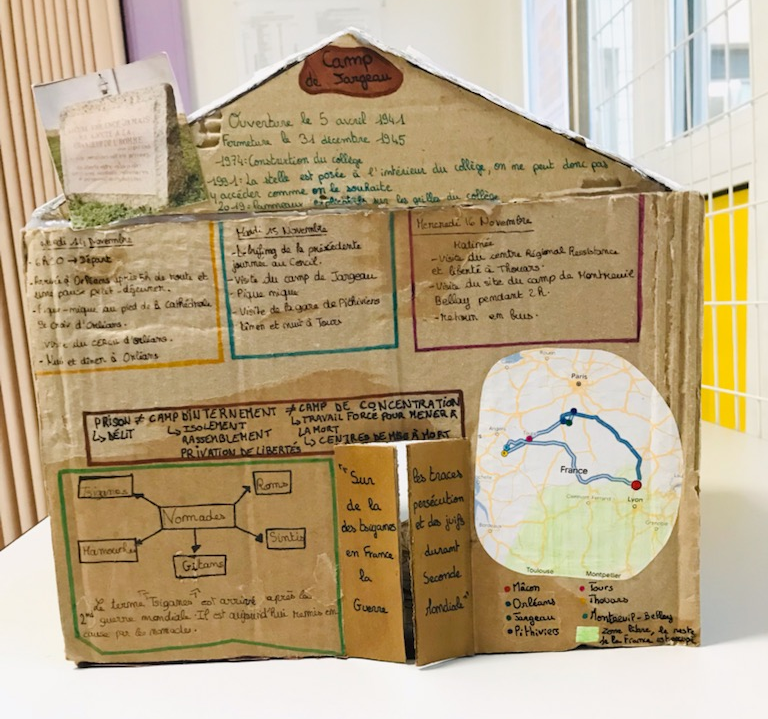 Camp
de Jargeau
Ouverture le 5 avril 1941
Fermeture le 31 décembre 1945
1974: Construction du collège
1991: La stelle est posée à l'intérieur du collège, on ne peut donc pas
y accéder comme on le souhaite
2019: panneaux explicatifs sur les grilles du collège
14 Novembre
6h30 → Départ
- Arrivée à Orléans après 5h de route et
une pause petit-déjeuner.
- Pique-nique au pied de la Cathédrale
St Croix d'Orléans.
- Visite du cercil d'Orléans.
- Nuit et diner à Orléans
Mardi 15 Novembre
de la précédente
journée au Cercil.
- Visite du camp de Jargeau
- Pique nique
- Visite de la gare de Pithiviers
Diner et nuit à Tours
Mercredi 16 Novembre
Matinée
- Visite du centre Régional Resistance
et liberté à Thouars.
- Visite du site du camp de Montreuil
Bellay pendant 2h.
- Retour en bus.
PRISON ≠ CAMP D'INTERNEMENT ≠ CAMP DE CONCENTRATION
↳ DÉLIT ↳ ISOLEMENT ↳ TRAVAIL FORCÉ POUR MENER À
RASSEMBLEMENT LA MORT
PRIVATION DE LIBERTÉS ↳ CENTRES DE MISE À MORT
Tsiganes
Roms
Nomades
Manouches
Sintis
Gitans
Le terme "Tsiganes" est arrivé après la
2nd guerre mondiale. Il est aujourd'hui remis en
cause par les nomades.
"Sur les traces
de la persécution
des tsiganes et des juifs
en France durant
la Seconde
Guerre Mondiale"
Rouen
Paris
Angers
France
Lyon
Clermont-Ferrand
Grenoble
Bordeaux
Toulouse
Montpellier
Mâcon
Orléans
Jargeau
Pithiviers
Tours
Thouars
Montreuil-Bellay
Zone libre, le reste
de la France est occupé